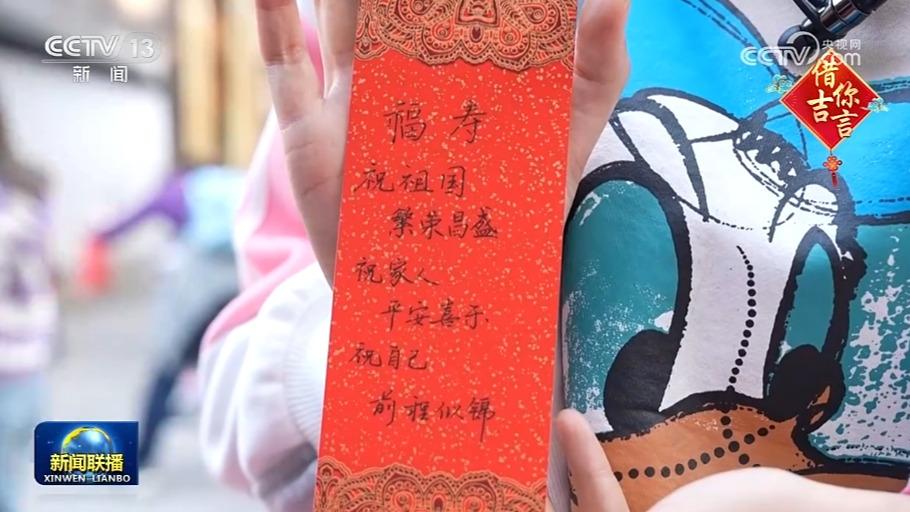 CCTV 13
新闻
CCTV 央视网
com
借你吉言
福寿
祝祖国
繁荣昌盛
祝家人
平安喜乐
祝自己
前程似锦
新闻联播
XINWEN LIANBO